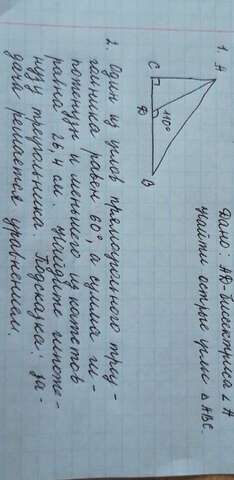 1.
A
C
D
B
110°
Дано: AD-биссектриса ∠A
Найти острые углы △ABC.
2. Один из углов прямоугольного треу-
гольника равен 60°, а сумма ги-
потенузы и меньшего из катетов
равна 26,4 см. Найдите гипоте-
нузу треугольника. Подсказка: за-
дача решается уравнением.